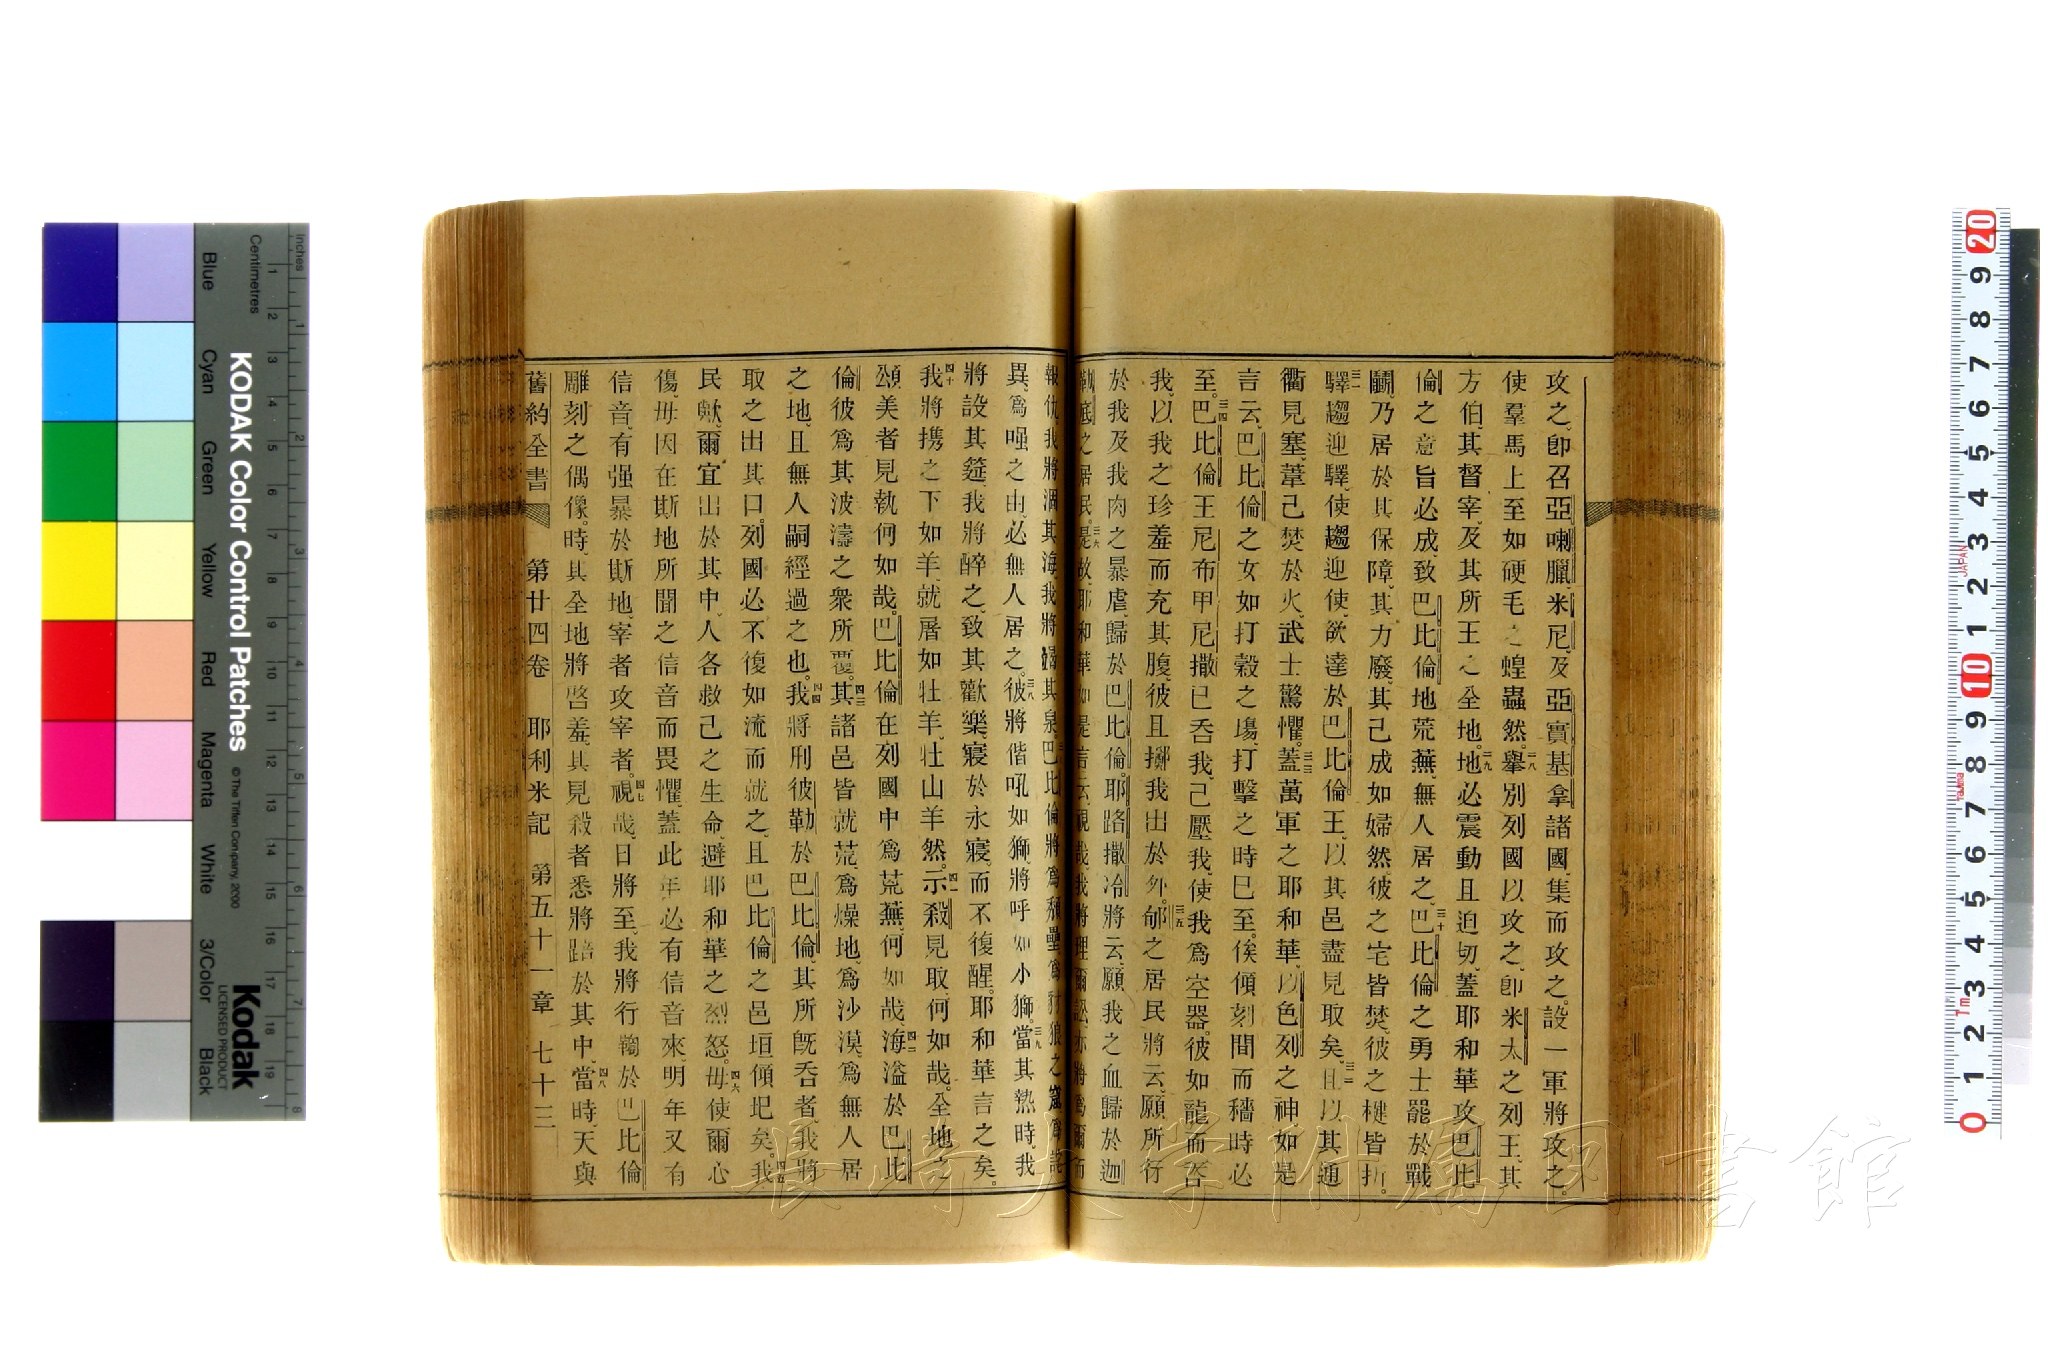 攻之。卽召亞喇臘、米尼、及亞實基拿諸國、集而攻之。設一軍將攻之。
使羣馬上至如硬毛之蝗蟲然。二八舉別列國以攻之、卽米太之列王、其
方伯、其督宰、及其所王之全地。二九地必震動且迫切、蓋耶和華攻巴比
倫之意旨必成、致巴比倫地荒蕪、無人居之。三十巴比倫之勇士罷於戰
鬬。乃居於其保障、其力廢、其己成如婦然。彼之宅皆焚。彼之楗皆折。
三一驛趨迎驛、使趨迎使、欲達於巴比倫王、以其邑盡見取矣。三二且以其通
衢見塞。葦己焚於火、武士驚懼。三三蓋萬軍之耶和華、以色列之神如是
言云、巴比倫之女如打穀之塲、打擊之時巳至。俟傾刻間而穡時必
至。三四巴比倫王尼布甲尼撒已呑我、己壓我、使我爲空器。彼如龍而吞
我、以我之珍羞而充其腹、彼且擲我出於外。三五郇之居民將云、願所行
於我及我肉之暴虐、歸於巴比倫。耶路撒冷將云、願我之血歸於迦
勒底之居民。三六是故、耶和華如是言云、視哉、我將理爾訟、亦將爲爾而
報仇、我將涸其海、我將竭其泉。三七巴比倫將爲頽壘、爲豺狼之窟、爲詫
異、爲嗤之由、必無人居之。三八彼將偕吼如獅、將呼如小獅。三九當其熱時、我
將設其筵、我將醉之、致其歡樂、寢於永寢而不復醒。耶和華言之矣。
四十我將携之下如羊、就屠如牡羊、牡山羊然。四一示殺見取、何如哉。全地之
頌美者見執何如哉。巴比倫在列國中爲荒蕪、何如哉。四二海溢於巴比
倫、彼爲其波濤之衆所覆。四三其諸邑皆就荒、爲燥地、爲沙漠、爲無人居
之地、且無人嗣經過之也。四四我將刑彼勒於巴比倫、其所旣呑者、我將
取之出其口。列國必不復如流而就之、且巴比倫之邑垣傾圯矣。四五我
民歟、爾宜出於其中、人各救己之生命、避耶和華之烈怒。四六毋使爾心
傷、毋因在斯地所聞之信音而畏懼、蓋此年必有信音來、明年又有
信音、有强暴於斯地、宰者攻宰者。四七視哉、日將至、我將行鞫於巴比倫
雕刻之偶像。時、其全地將啓羞、其見殺者悉將踣於其中、四八當時、天與
舊約全書 第廿四卷 耶利米記 第五十一章 七十三
Inches
Centimetres
Blue
Cyan
Green
Yellow
Red
Magenta
White
3/Color
Black
KODAK Color Control Patches
© The Tiffen Company, 2000
Kodak
LICENSED PRODUCT
JAPAN
Tajima
1m
長崎大学附属図書館